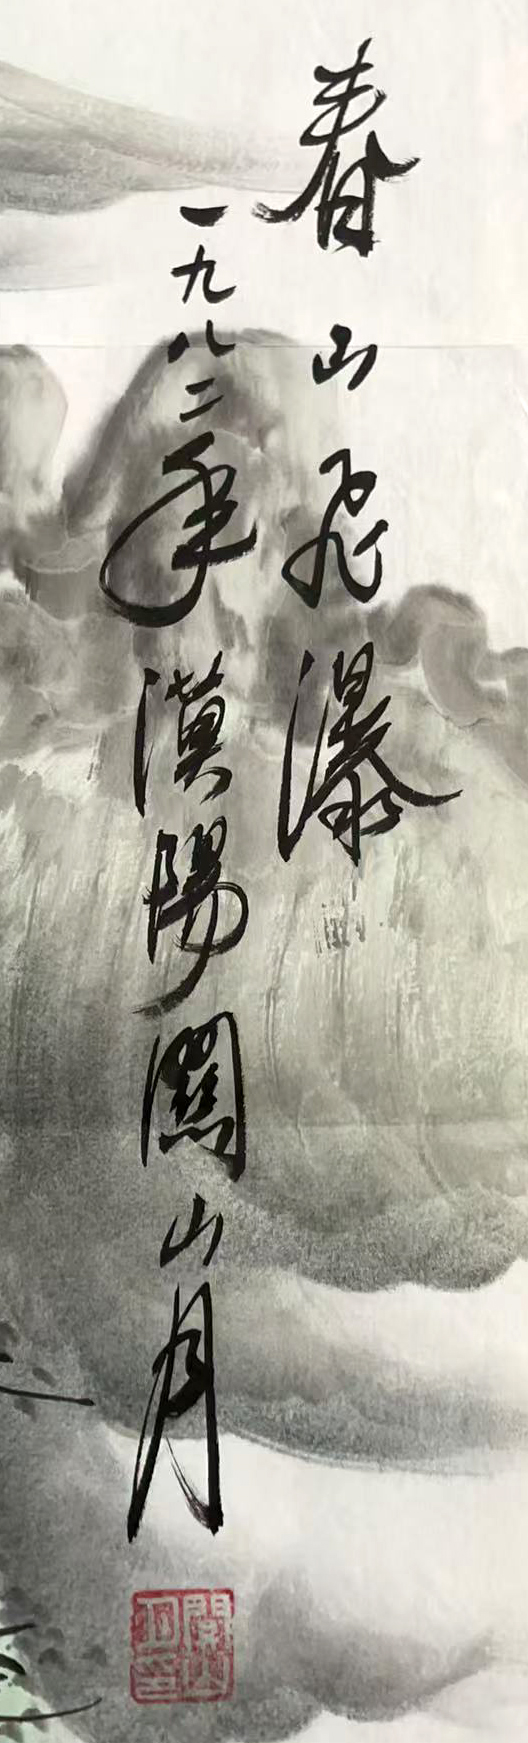 春山飛瀑
一九八二年漢陽關山月
關山月印